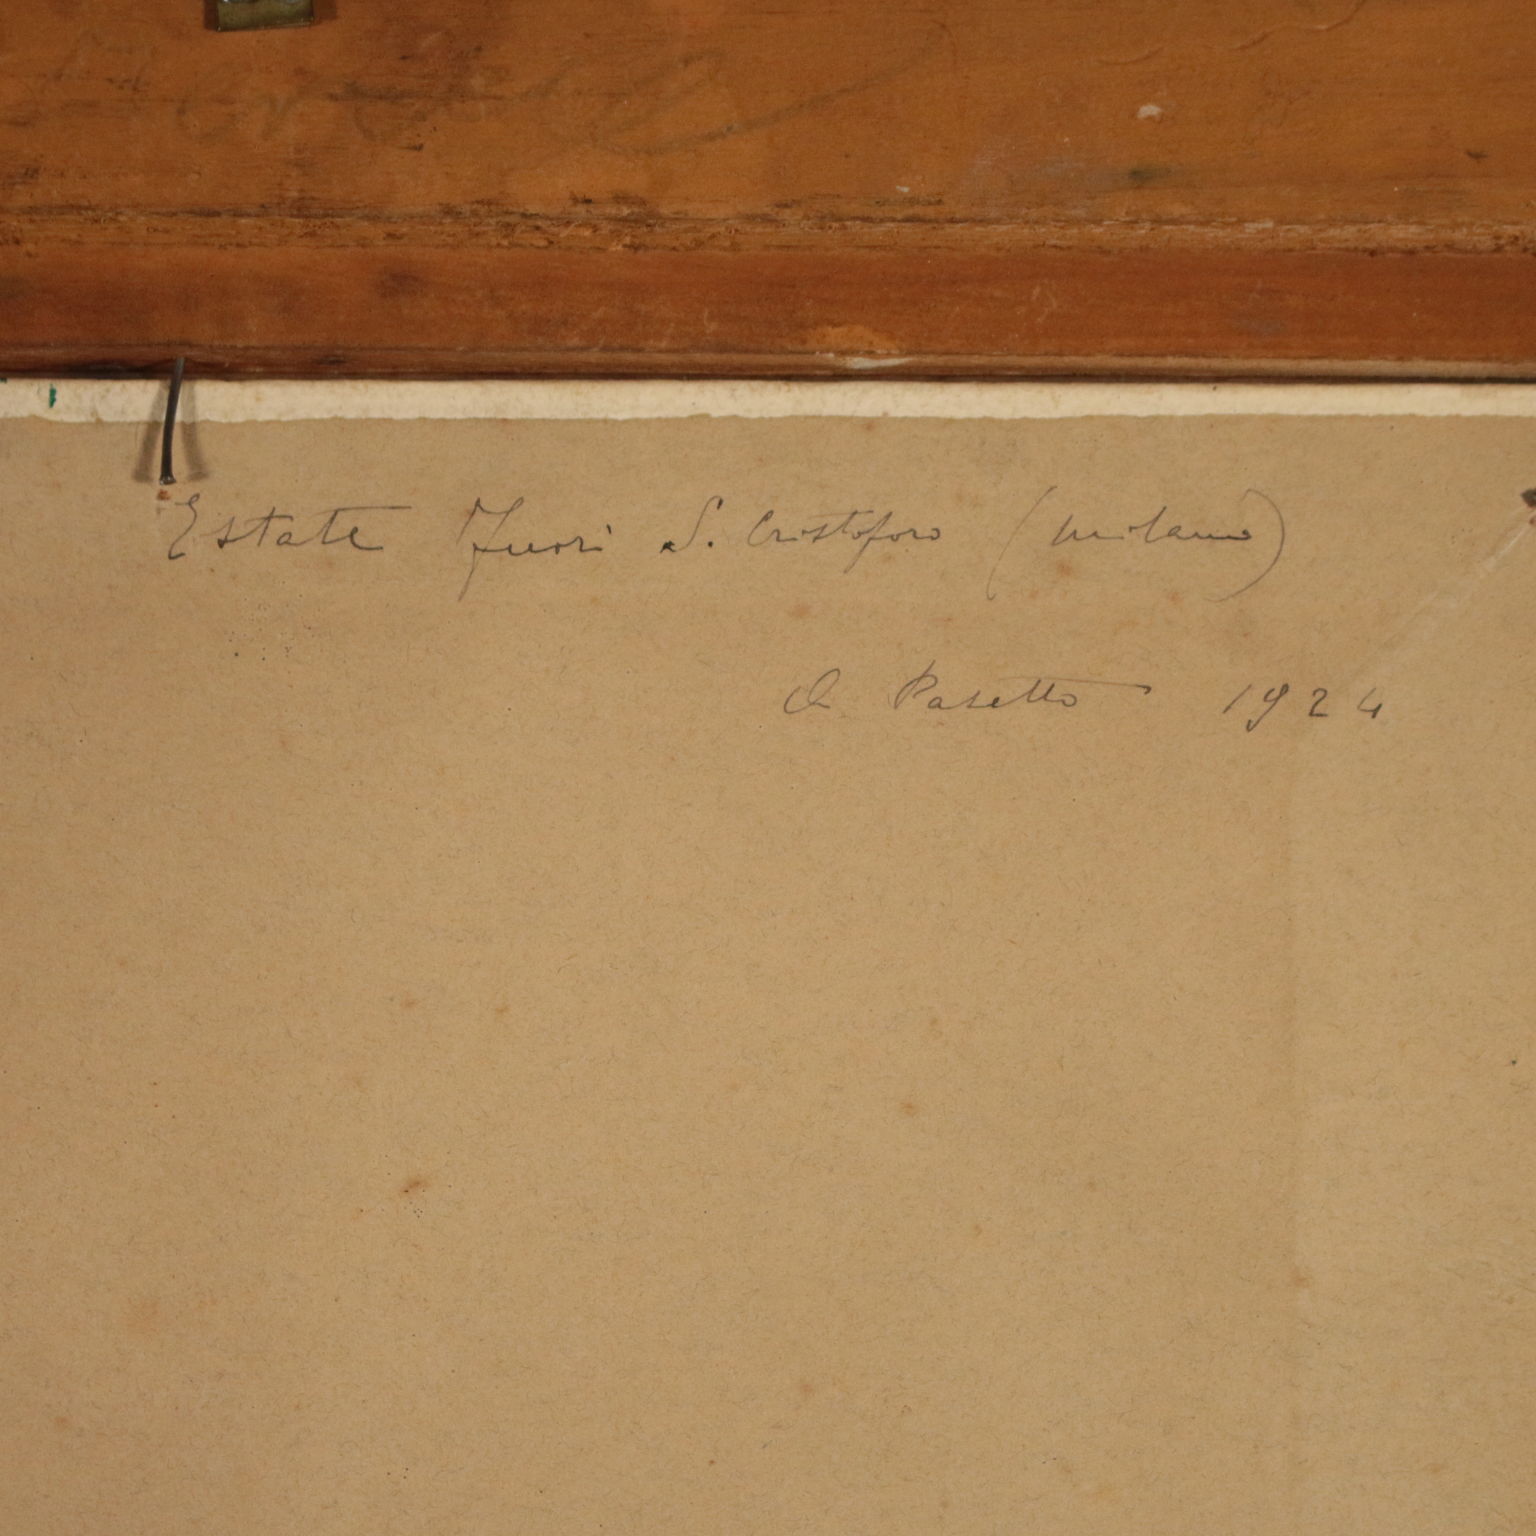 Estate fuori S. Cristoforo (Milano)
A Pasetto 1924